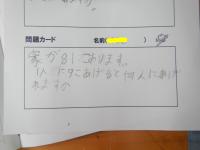 問題カード 名前(
家が81こあります。
1人に9こあげると何人にあげ
れますか